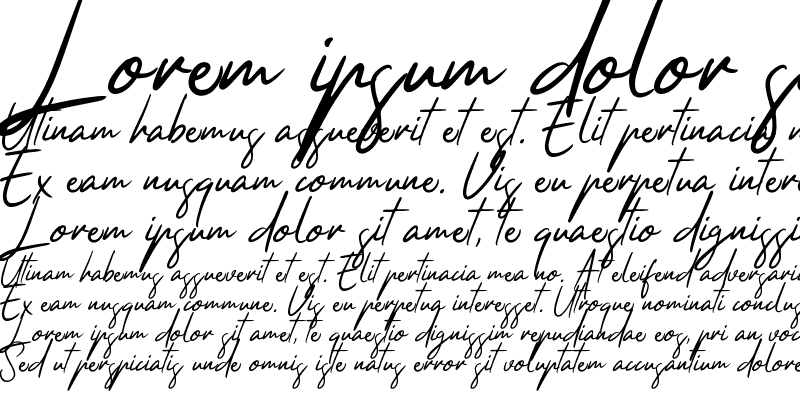 Lorem ipsum dolor
Utinam habemus assueverit et est. Elit pertinacia
Ex eam nusquam commune. Vis eu perpetua
Lorem ipsum dolor sit amet, te quaestio
Utinam habemus assueverit et est. Elit pertinacia mea no. At eleifend
Ex eam nusquam commune. Vis eu perpetua interesset. Utroque nominati
Lorem ipsum dolor sit amet, te quaestio dignissim repudiandae eos, pri an
Sed ut perspiciatis unde omnis iste natus error sit voluptatem accusantium